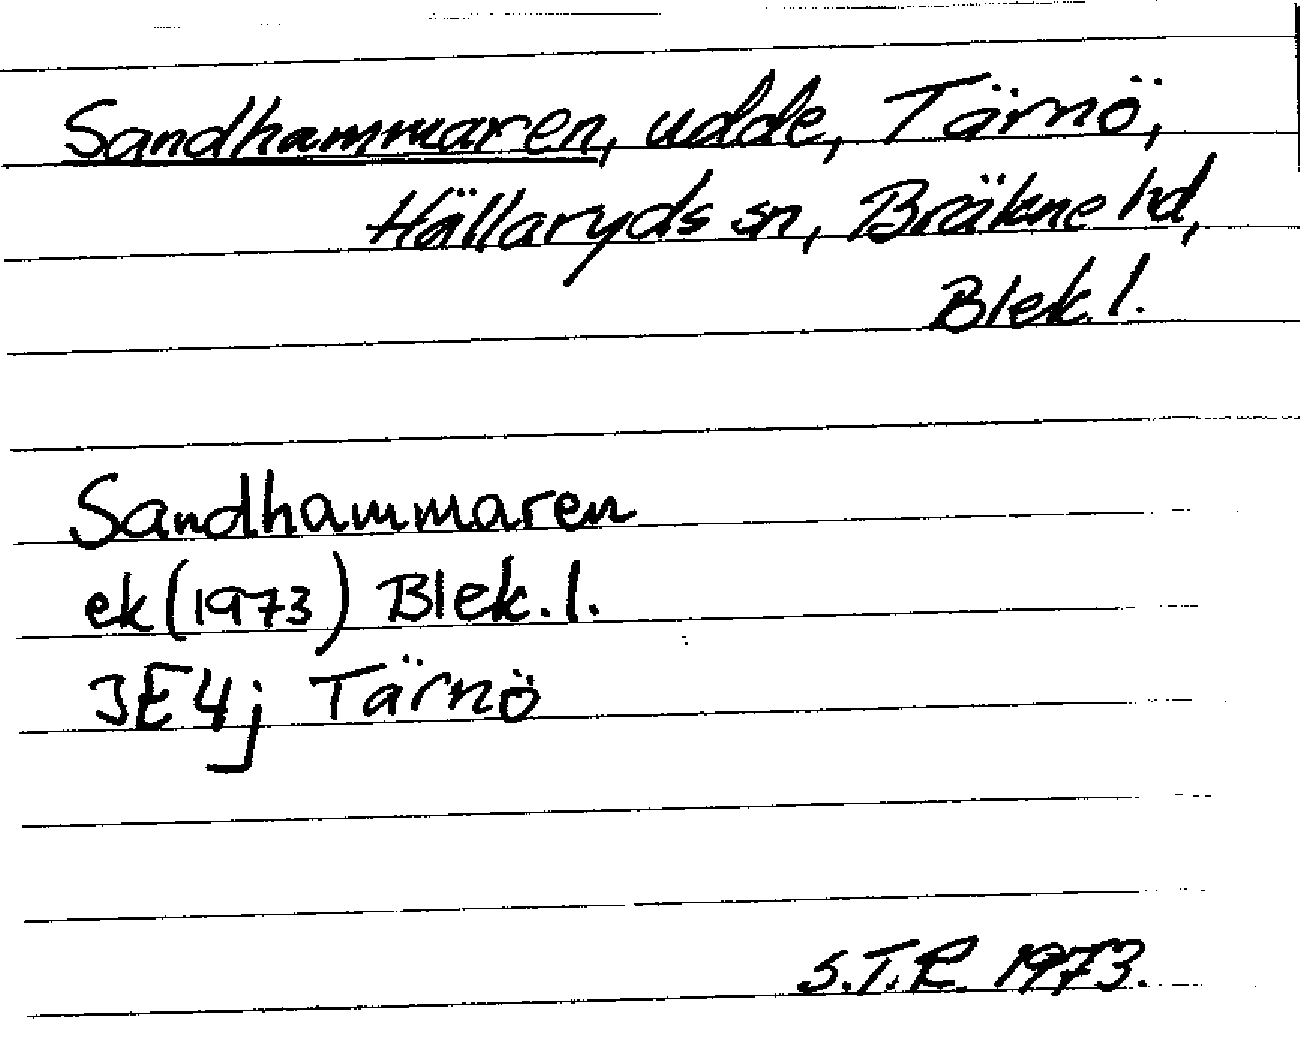 Sandhammaren, udde, Tärnö,
Hällaryds sn, Bräkne hd,
Blek. l.
Sandhammaren
ek (1973) Blek. l.
3E4j Tärnö
S.T.R. 1973.